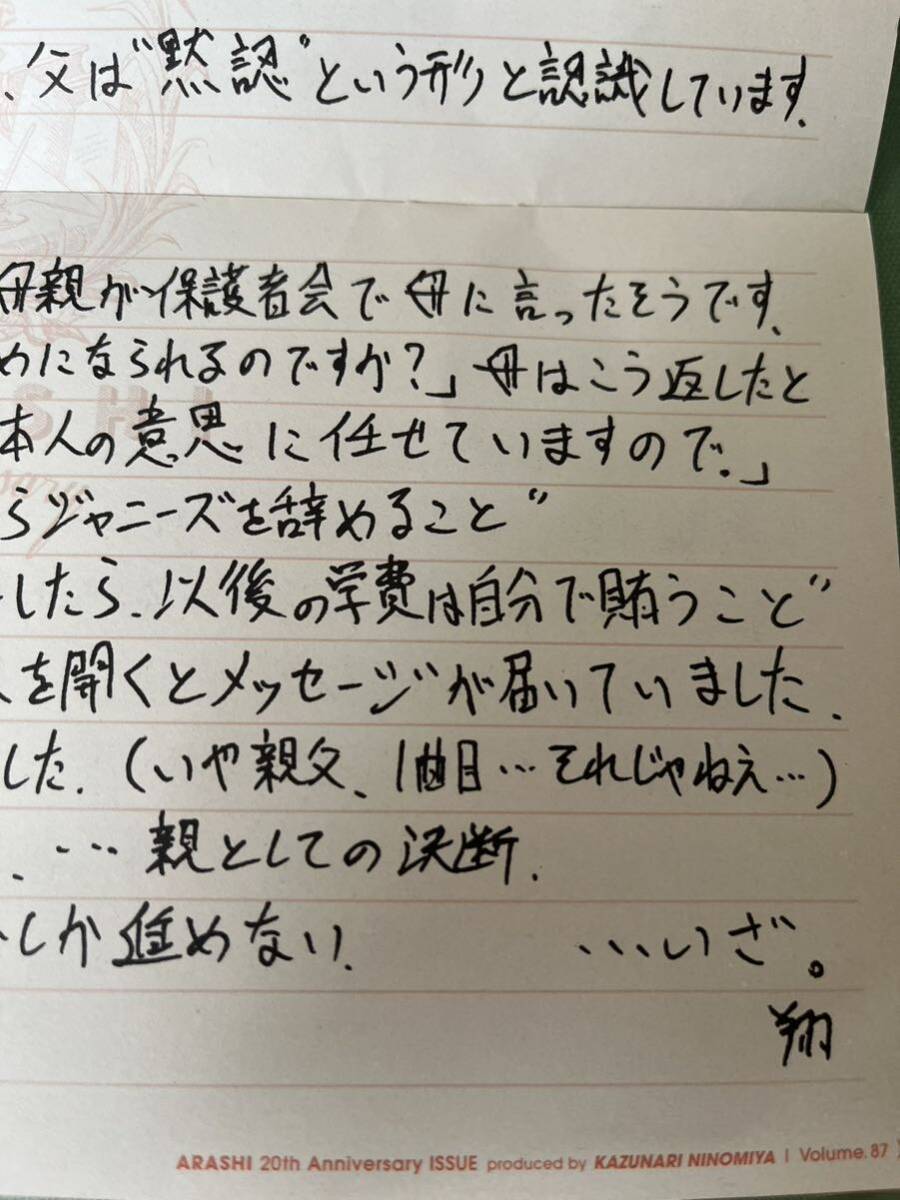 、父は“黙認”という形と認識しています.
母親が保護者会で母に言ったそうです、
めになられるのですか？」母はこう返したと
本人の意思に任せていますので.」
らジャニーズを辞めること”
したら、以後の学費は自分で賄うこと”
を開くとメッセージが届いていました.
した.（いや親父、1曲目…それじゃねえ…）
、…親としての決断.
しか進めない. …いざ。
翔
ARASHI 20th Anniversary ISSUE produced by KAZUNARI NINOMIYA | Volume.87